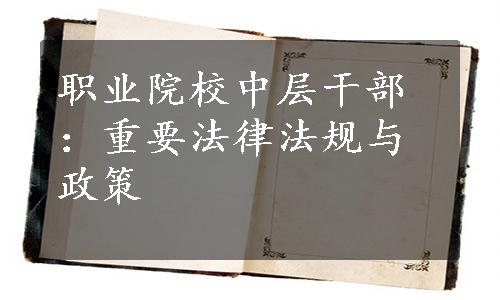 职业院校中层干部
：重要法律法规与
政策